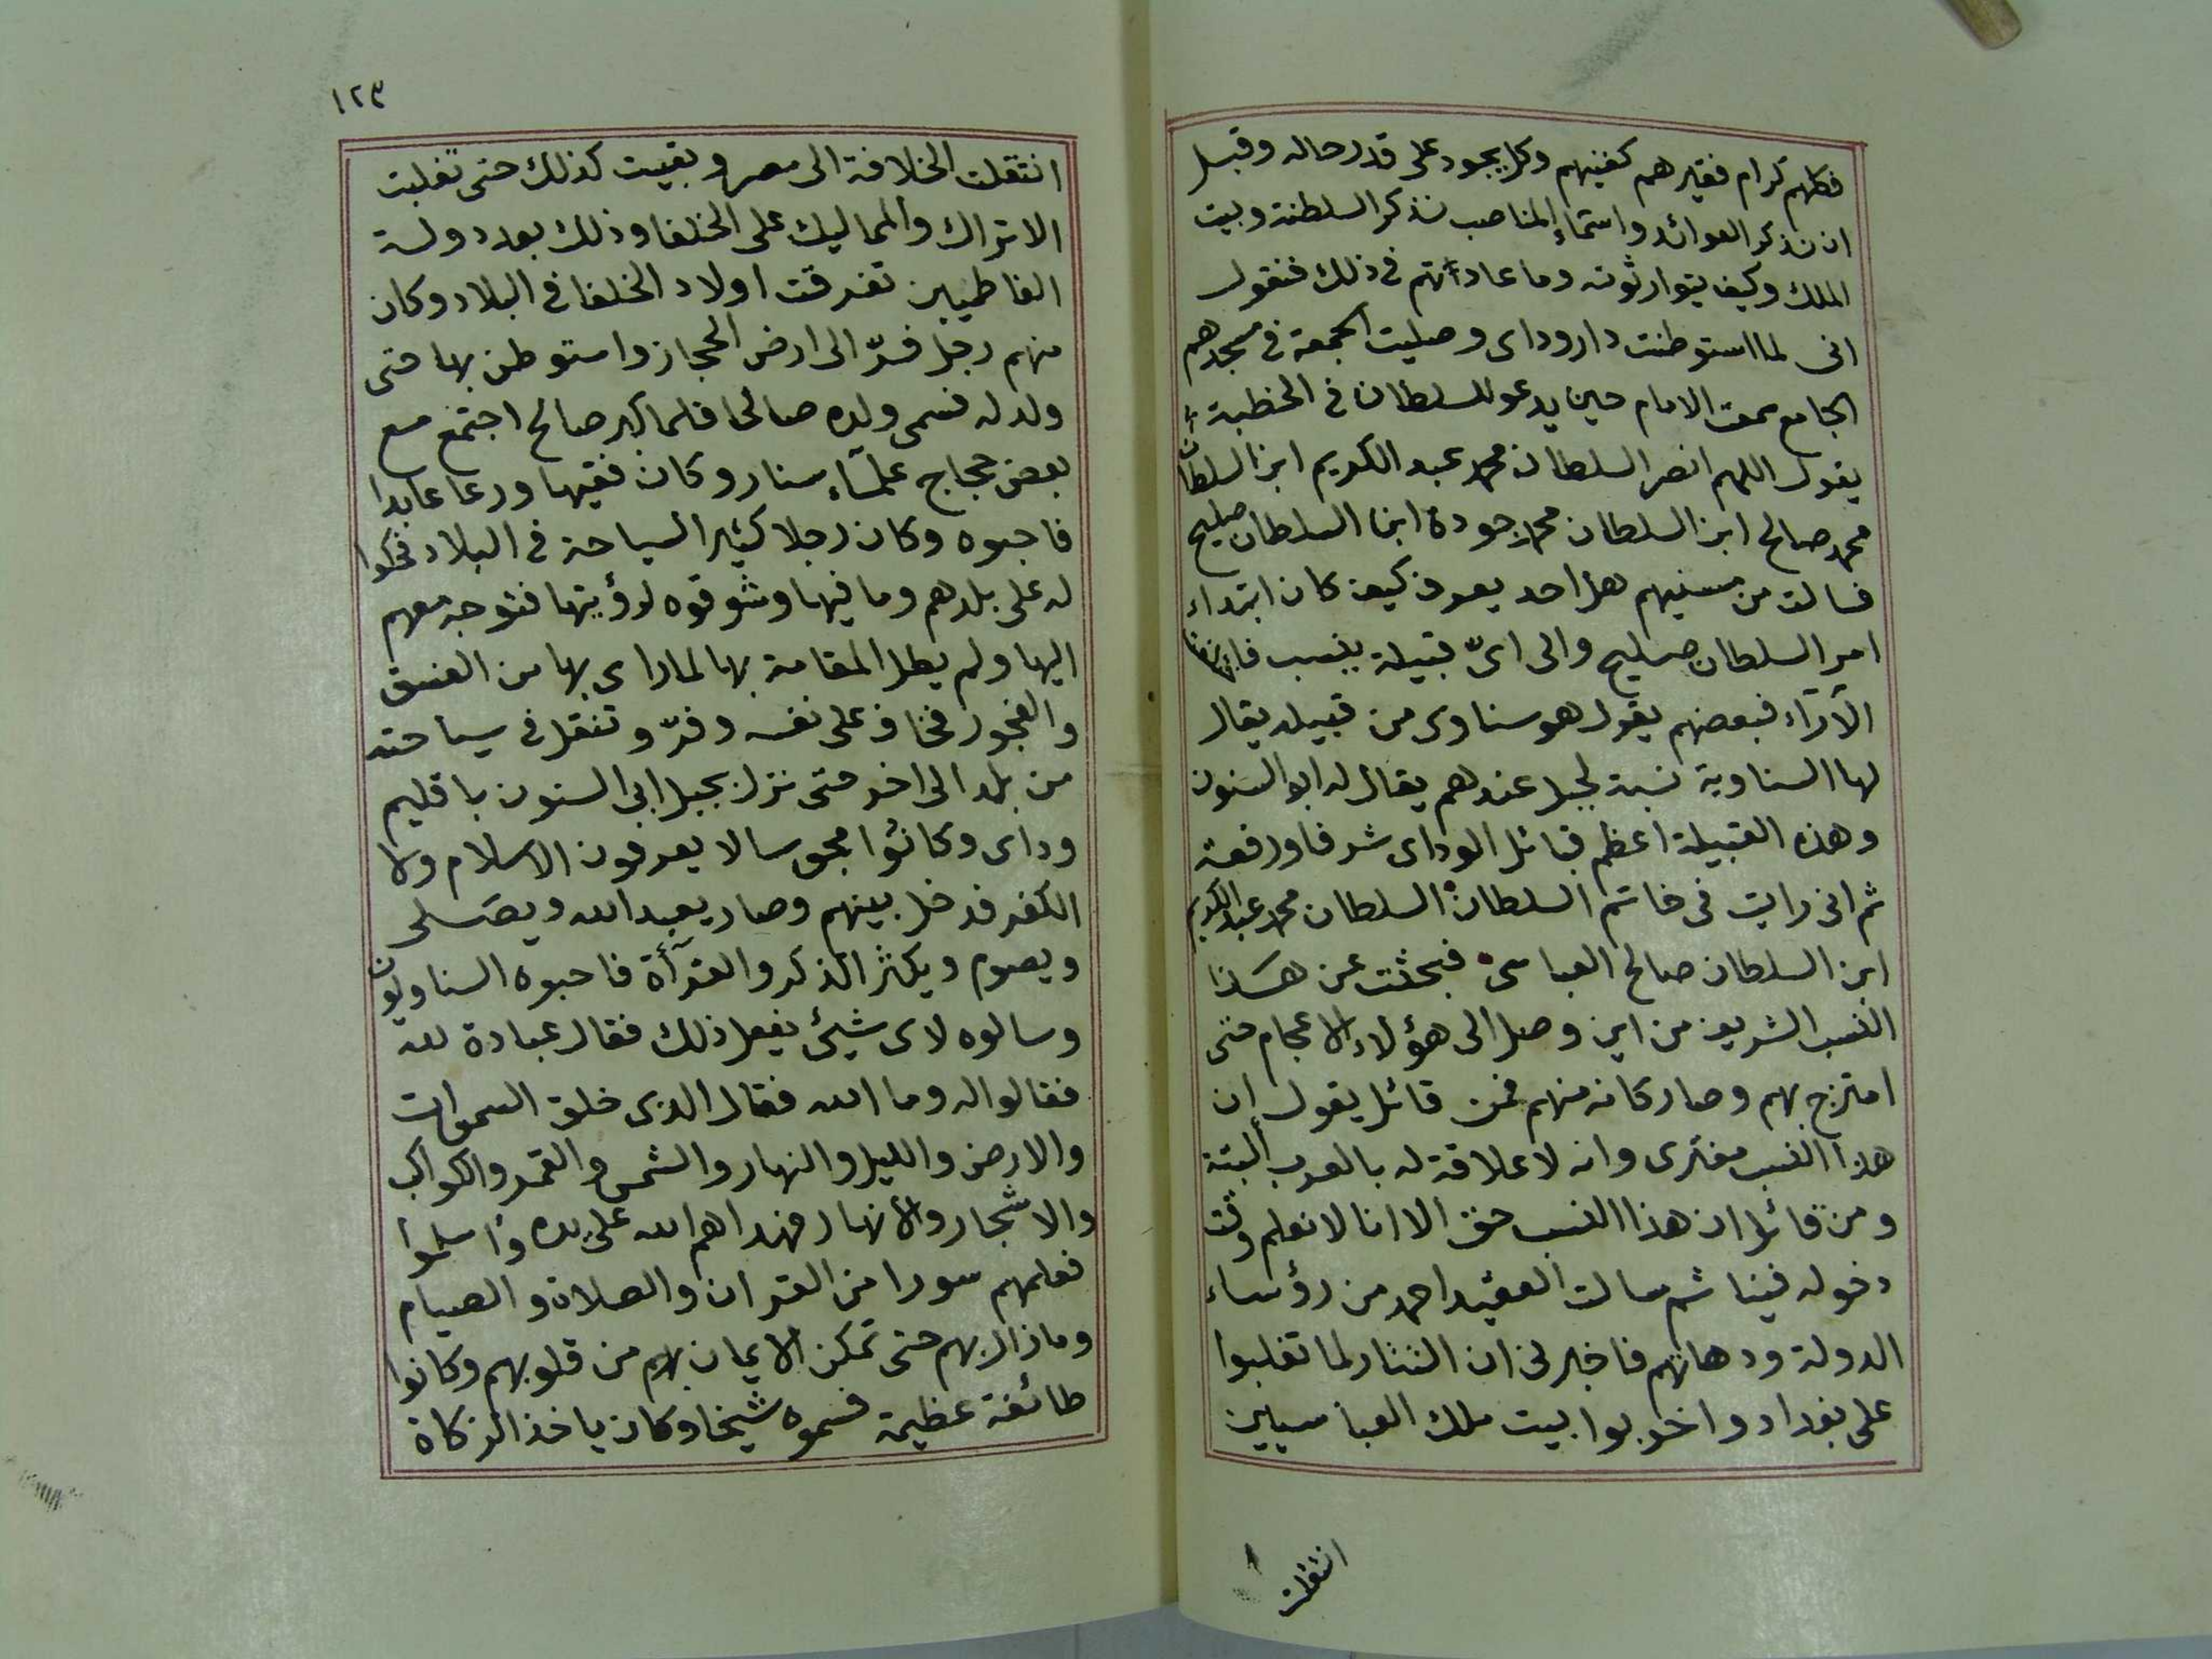 فكلهم كرام فقيرهم كغنيهم وكل يجود على قدر حاله وقبل
ان نذكر العوائد واسماء المناصب نذكر السلطنة وبيت
الملك وكيف يتوارثونه وما عاداتهم فى ذلك فنقول
انى لما استوطنت دار وداى وصليت الجمعة فى مسجدهم
الجامع سمعت الامام حين يدعو للسلطان فى الخطبة
يقول اللهم انصر السلطان محمد عبد الكريم ابن السلطان
محمد صالح ابن السلطان محمد جودة ابن السلطان صليح
فسالت من مسنيهم هل احد يعرف كيف كان ابتداء
امر السلطان صليح والى اىّ قبيلة ينسب
الآراء فبعضهم يقول هو سناوى من قبيله يقال
لها السناوية نسبة لجبل عندهم يقال له ابو السنون
وهذه القبيلة اعظم قبائل الوداى شرفا ورفعة
ثم انى رايت فى خاتم السلطان السلطان محمد عبد الكريم
ابن السلطان صالح العباسى فبحثت عن هذا
النسب الشريف من اين وصل الى هؤلاء الاعجام حتى
امتزج بهم وصار كانه منهم فمن قائل يقول ان
هذا النسب مفترى وانه لا علاقة له بالعرب البتة
ومن قائل ان هذا النسب حق الا انا لا نعلم وقت
دخوله فينا ثم سالت العقيد احمد من رؤساء
الدولة ودهاتهم فاخبرنى ان التتار لما تغلبوا
على بغداد واخربوا بيت ملك العباسيين
انتقلت
١٢٣
انتقلت الخلافة الى مصر وبقيت كذلك حتى تغلبت
الاتراك والمماليك على الخلفا وذلك بعد دولة
الفاطميين تفرقت اولاد الخلفا فى البلاد وكان
منهم رجل فرّ الى ارض الحجاز واستوطن بها حتى
ولد له فسمى ولده صالحا فلما كبر صالح اجتمع مع
بعض حجاج علماء سنار وكان فقيها ورعا عابدا
فاحبوه وكان رجلا كثير السياحة فى البلاد فحكوا
له على بلدهم وما فيها وشوقوه لرؤيتها فتوجه معهم
اليها ولم يطل المقامة بها لما راى بها من الفسق
والفجور فخاف على نفسه وفرّ وتنقل فى سياحته
من بلد الى اخر حتى نزل بجبل ابى السنون باقليم
وداى وكانوا مجوسا لا يعرفون الاسلام ولا
الكفر فدخل بينهم وصار يعبد الله ويصلى
ويصوم ويكثر الذكر والقرآة فاحبوه السناويون
وسالوه لاى شيئ يفعل ذلك فقال عبادة لله
فقالوا له وما الله فقال الذى خلق السموات
والارض والليل والنهار والشمس والقمر والكواكب
والاشجار والانهار فهداهم الله على يده واسلموا
فعلمهم سورا من القران والصلاة والصيام
وما زال بهم حتى تمكن الايمان بهم من قلوبهم وكانوا
طائفة عظيمة فسموه شيخا وكان ياخذ الزكاة